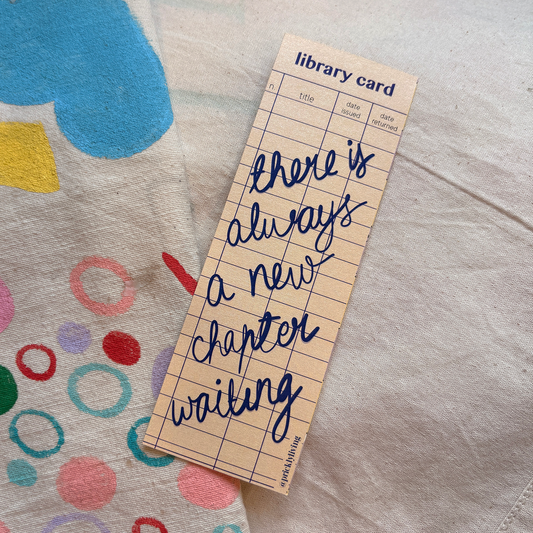 library card
n title date issued date returned
there is
always
a new
chapter
waiting
@pricklyliving